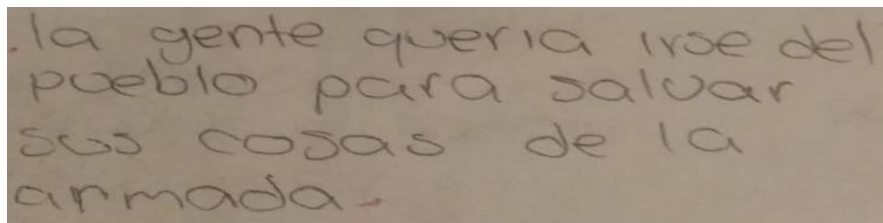 .la gente queria irse del
pueblo para salvar
sus cosas de la
armada.